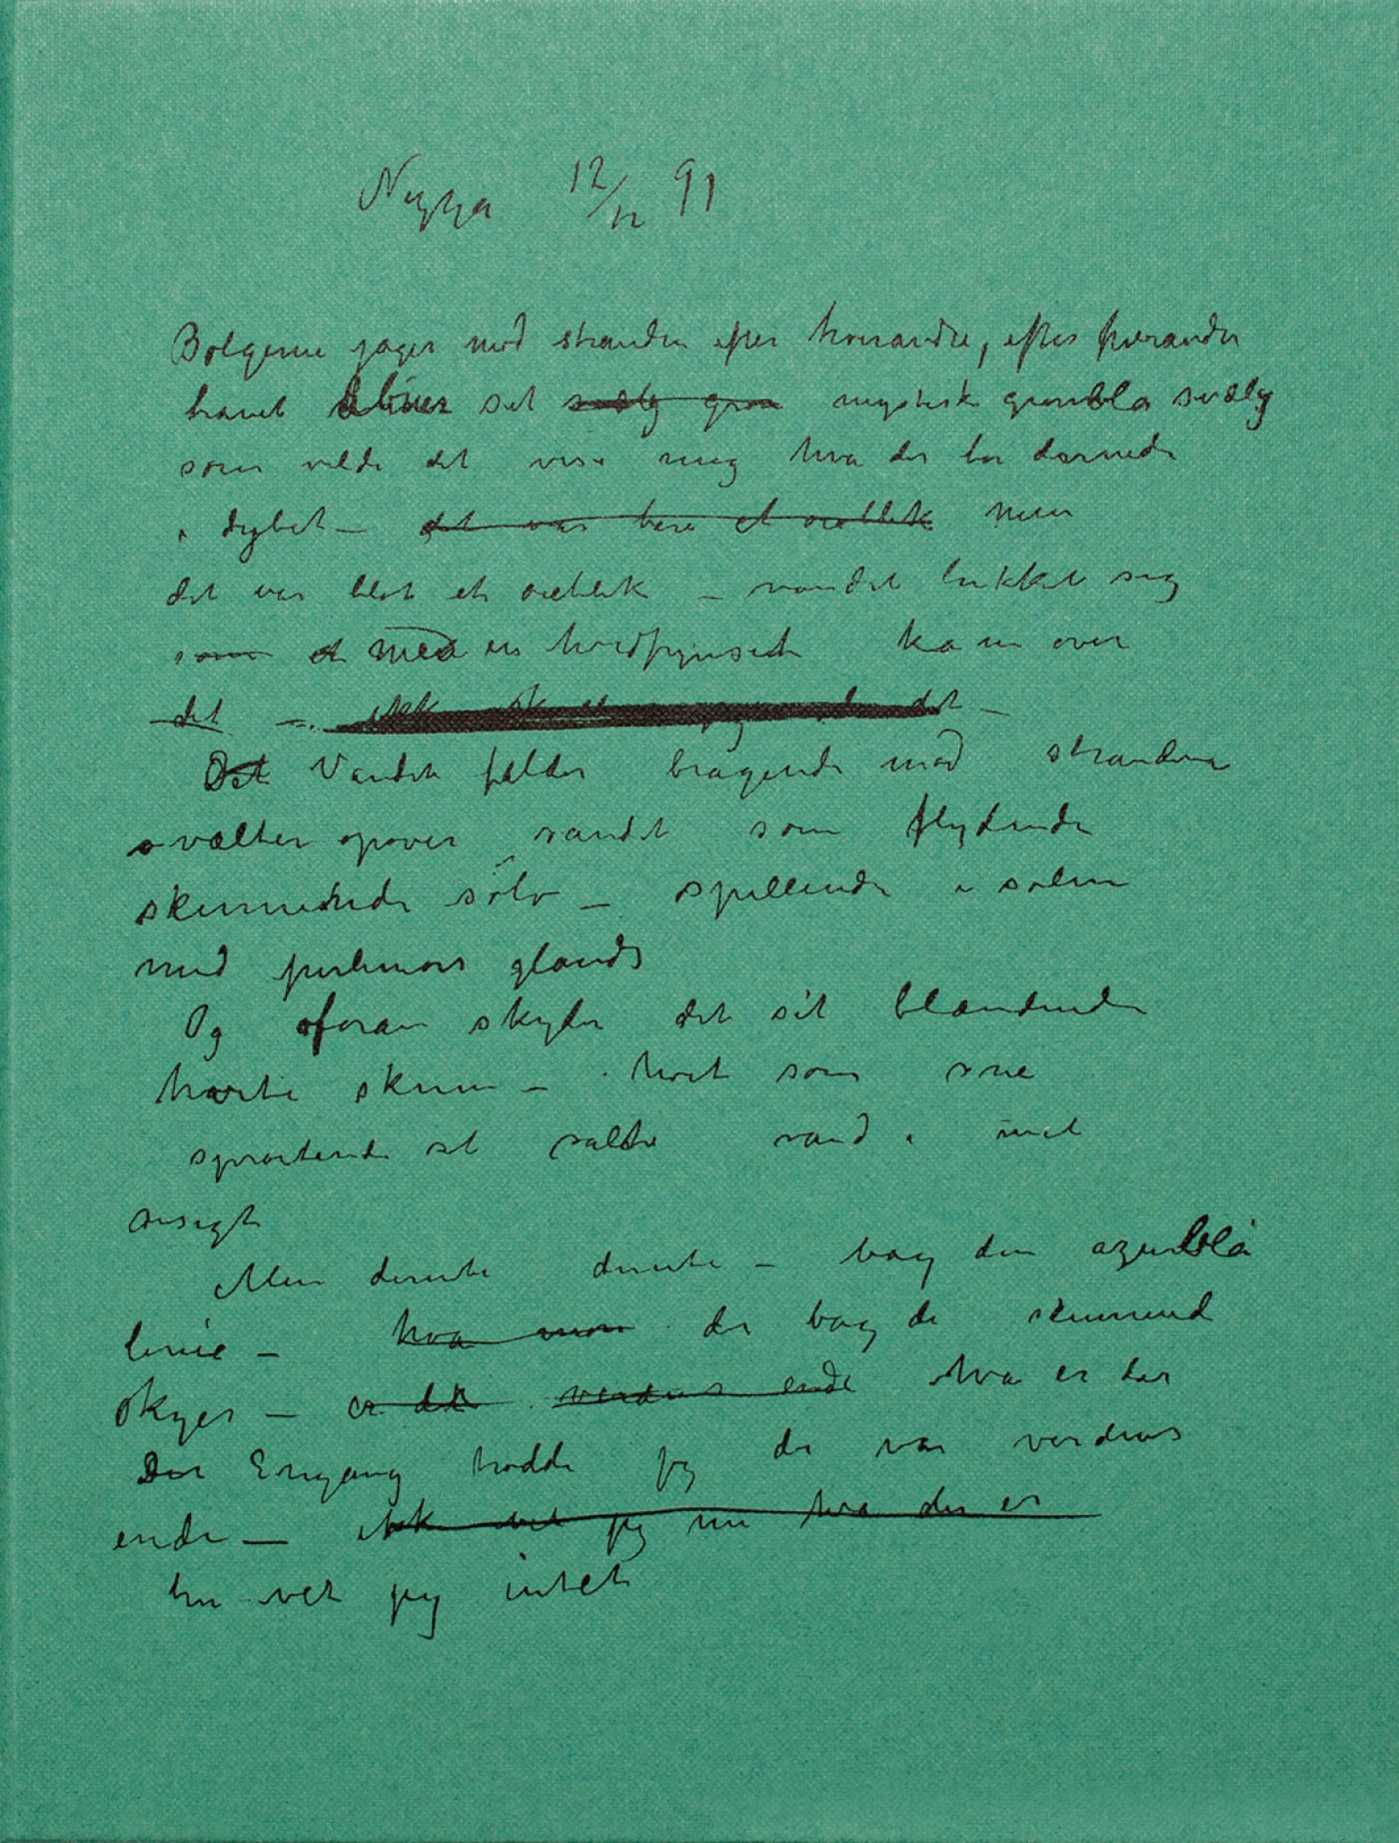 12/12 91
Bølgerne jager mod stranden efter hverandre, efter hverandre
havet sit svælg grøn mystisk grønblå svælg
som vilde det vise mig hva der bor dernede
i dybet — det var bare et øieblik men
det var blot et øieblik — vandet lukket sig
som et med en kam over
det — ikke det —
Det Vandet falder bragende mod stranden
vælter opover sandet som flydende
skinnende sølv — spillende i solen
med perlemors glands
Og foran skyder det sit blændende
hvite skum — hvit som sne
sprøitende sit salte vand i mit
ansigt
Men derute derute — bag den azurblå
linie — hva mon der bag de skinnend
skyer — er det verdens ende Hva er der
Der Engang trodde jeg der var verdens
ende — ikke vet jeg nu hva der er
nu vet jeg intet